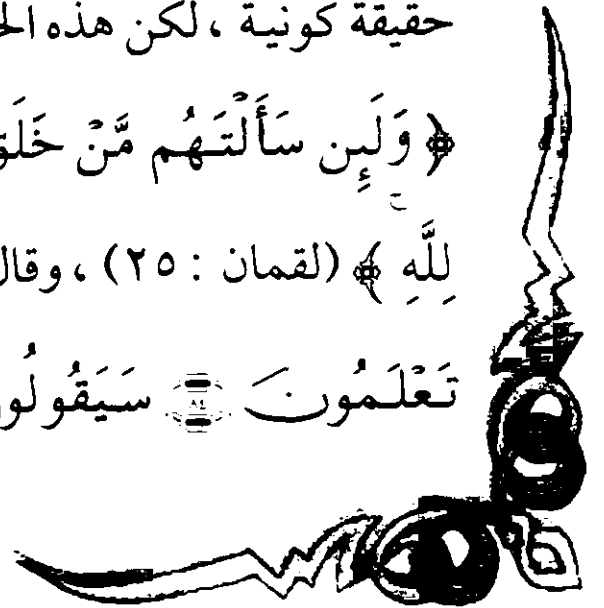 حقيقة كونية ، لكن هذه
﴿ وَلَئِن سَأَلْتَهُم مَّنْ خَلَقَ
لِلَّهِ ﴾ (لقمان : ٢٥) ، وقال
تَعْلَمُونَ ٨٤ سَيَقُولُو